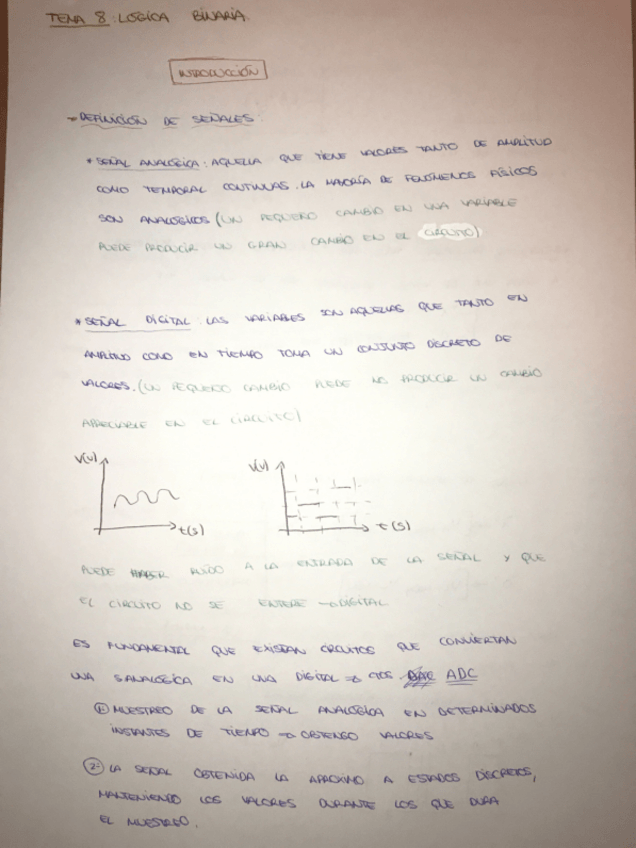 TEMA 8: LOGICA BINARIA.
INTRODUCCIÓN
→ DEFINICIÓN DE SEÑALES:
* SEÑAL ANALÓGICA: AQUELLA QUE TIENE VALORES TANTO DE AMPLITUD
COMO TEMPORAL CONTINUAS. LA MAYORÍA DE FENOMENOS FÍSICOS
SON ANALOGICOS (UN PEQUEÑO CAMBIO EN UNA VARIABLE
PUEDE PRODUCIR UN GRAN CAMBIO EN EL CIRCUITO)
* SEÑAL DIGITAL: LAS VARIABLES SON AQUELLAS QUE TANTO EN
AMPLITUD COMO EN TIEMPO TOMA UN CONJUNTO DISCRETO DE
VALORES. (UN PEQUEÑO CAMBIO PUEDE NO PRODUCIR UN CAMBIO
APRECIABLE EN EL CIRCUITO)
V(V) V(V)
t(s) t(s)
PUEDE HABER RUIDO A LA ENTRADA DE LA SEÑAL Y QUE
EL CIRCUITO NO SE ENTERE → DIGITAL
ES FUNDAMENTAL QUE EXISTAN CIRCUITOS QUE CONVIERTAN
UNA S.ANALÓGICA EN UNA DIGITAL → CTOS ADC
① MUESTREO DE LA SEÑAL ANALÓGICA EN DETERMINADOS
INSTANTES DE TIEMPO → OBTENGO VALORES
② LA SEÑAL OBTENIDA LA APROXIMO A ESTADOS DISCRETOS,
MANTENIENDO LOS VALORES DURANTE LOS QUE DURA
EL MUESTREO.